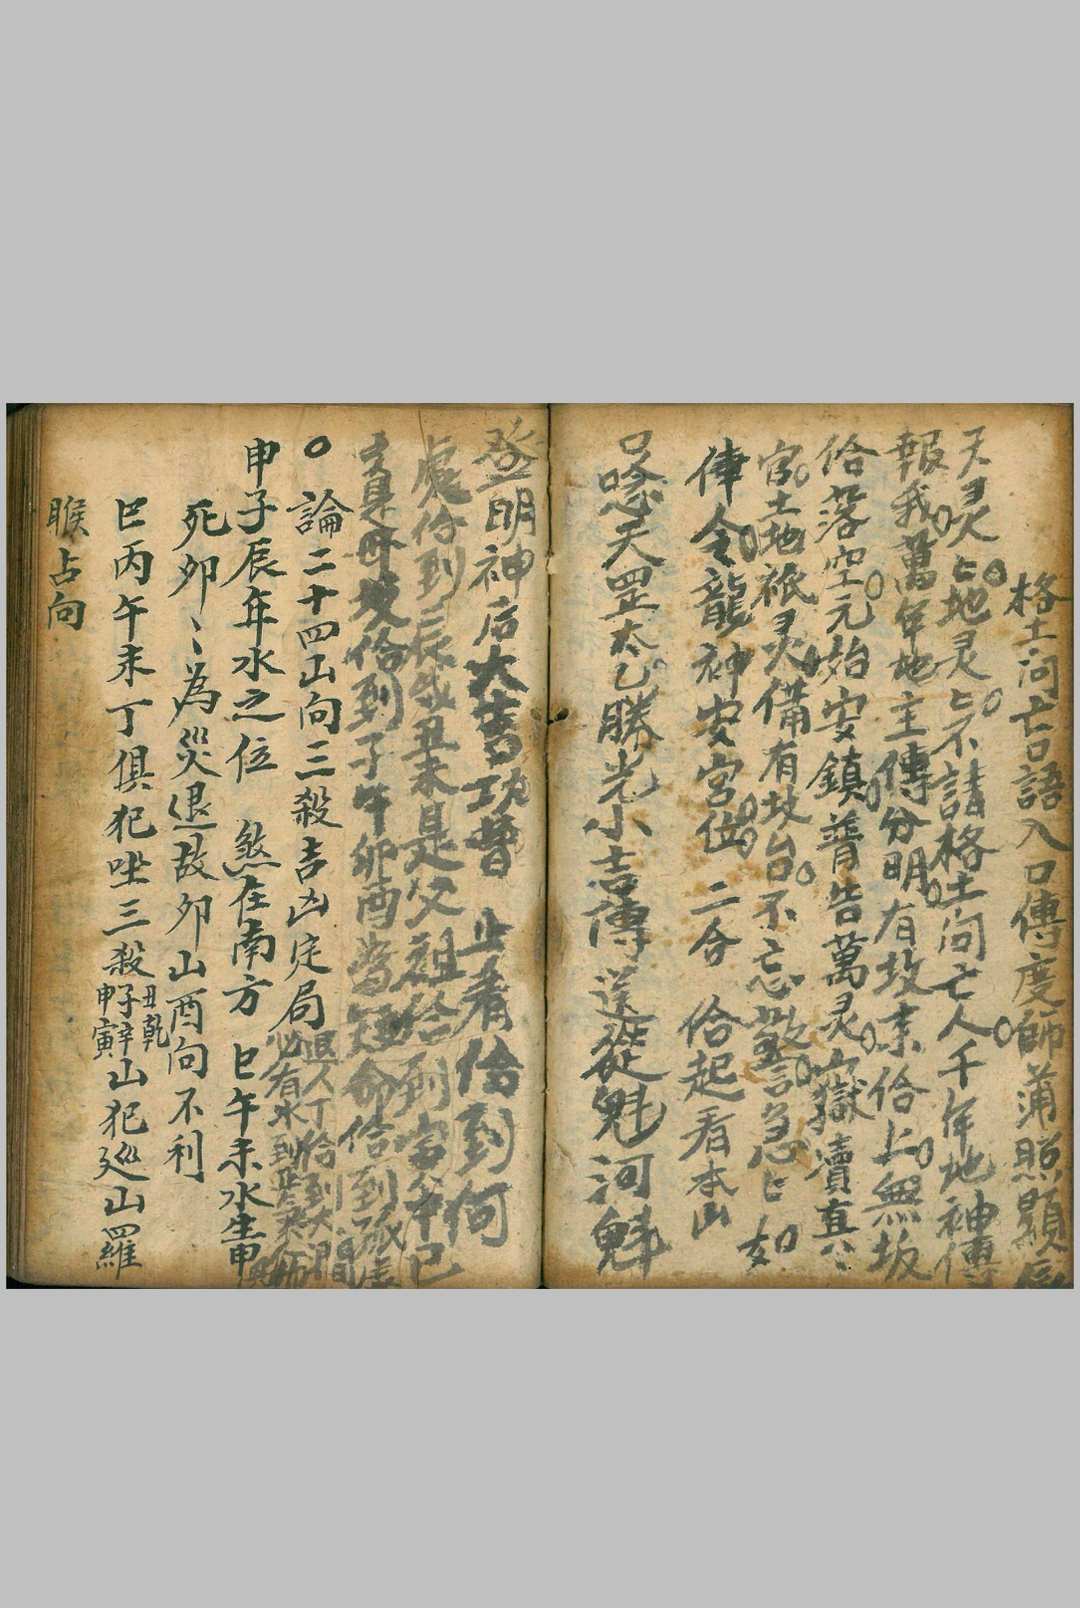 格土問亡語入口傳度師蒲照顯
天灵〻地灵〻不請格土问亡人千年地神傳
報我萬年地主傳分明有坟未佮上無坂
佮落空元始安鎮普告萬灵嶽瀆真〻
宫土地祇灵備有坟台不忘敬言急〻如
律令龍神安宮位 二合 佮起看本山
口唸天罡太乙勝光小吉傳送從魁河魁
登明神后大吉功曹 止看佮到何
處佮到辰戌丑未是父祖佮到寅午巳
亥是母坟佮到子午卯酉 命佮到
〇論二十四山向三殺吉凶定局
退人丁佮到大門
必有水到
申子辰年水之位 煞在南方 巳午未水生申
死卯〻為災退故卯山酉向不利
巳丙午未丁俱犯坐三殺
丑乾
子辛
申寅
山犯廵山羅
睺占向